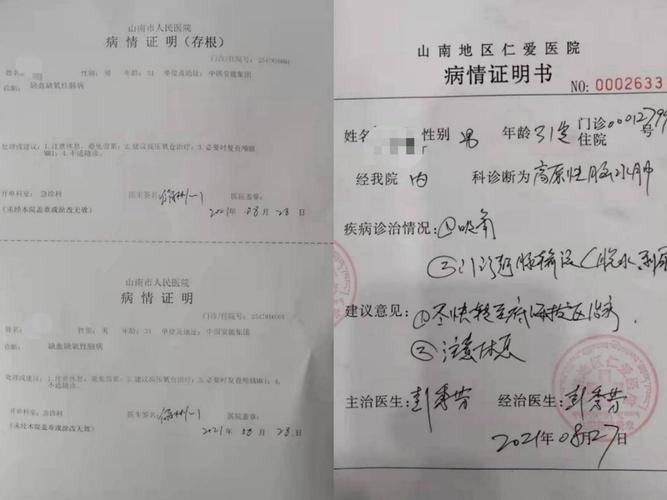 山南市人民医院
病情证明(存根)
门诊/住院号:
姓名: 性别:男 年龄:31 单位及地址:中国安能集团
诊断: 缺血缺氧性脑病
处理或建议:1.注意休息,避免劳累;2.建议高压氧仓治疗;3.必要时复查颅脑
MRI;4.不适随诊。
开单科室:急诊科 医车签名: 医院盖章:
(未经本院盖章或涂改无效)
2021年 08月 28日
山南市人民医院
病情证明
门诊/住院号:
姓名: 性别:男 年龄:31 单位及地址:中国安能集团
诊断: 缺血缺氧性脑病
处理或建议:1.注意休息,避免劳累;2.建议高压氧仓治疗;3.必要时复查颅脑MRI;4.
不适随诊。
开单科室:急诊科 医车签名: 医院盖章:
(未经本院盖章或涂改无效)
2021年 08月 28日
山南地区仁爱医院
病情证明书
NO:0002633
姓名 性别 男 年龄 31岁 门诊住院
经我院 内 科诊断为 高原性脑水肿
疾病诊治情况:①吸氧
②门诊静脉输液(脱水、利尿
建议意见:①尽快转至底海拔区治疗
②注意休息
主治医生:彭秀芳 经治医生:彭秀芳
2021年08月27日